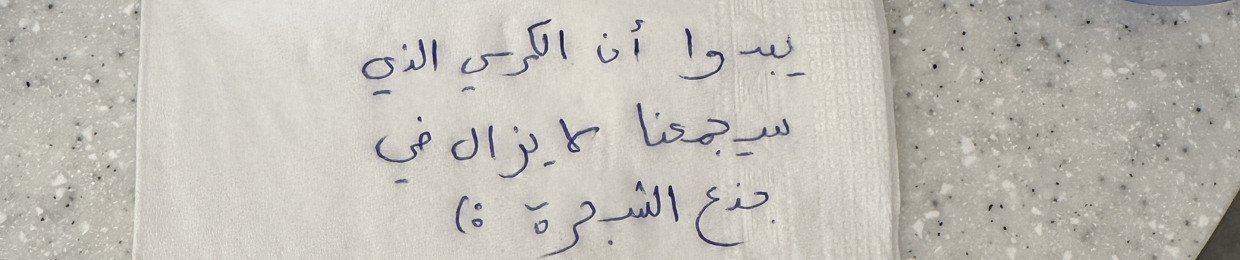 يبدوا أن الكرسي الذي
سيجمعنا لا يزال في
جذع الشجرة :)